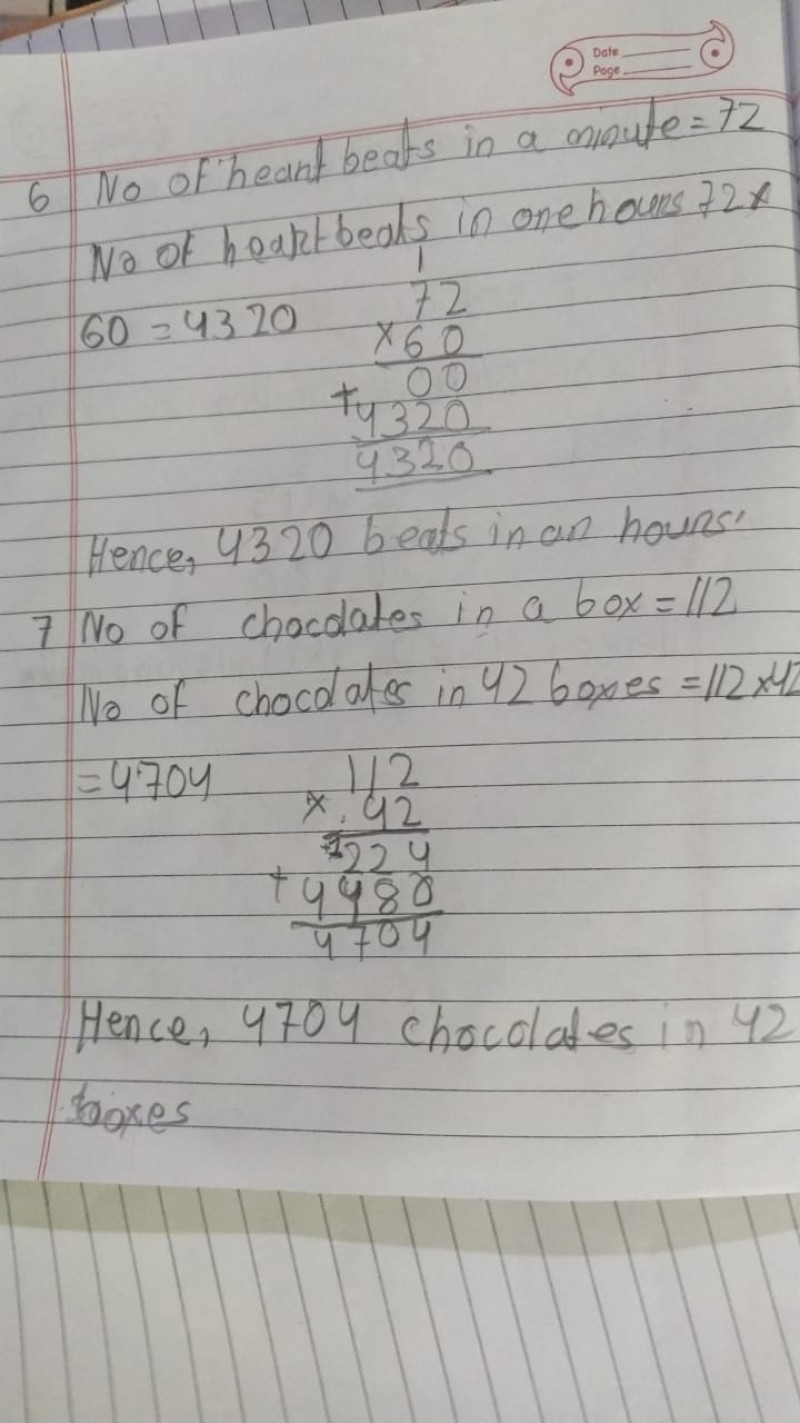 Date
Page
6 No of heart beats in a minute = 72
No of heartbeats in one hours 72 x
60 = 4320
1
72
x60
00
+4320
4320
Hence, 4320 beats in an hours.
7 No of chocolates in a box = 112
No of chocolates in 42 boxes = 112 x 42
= 4704
112
x 42
224
+4480
4704
Hence, 4704 chocolates in 42
boxes